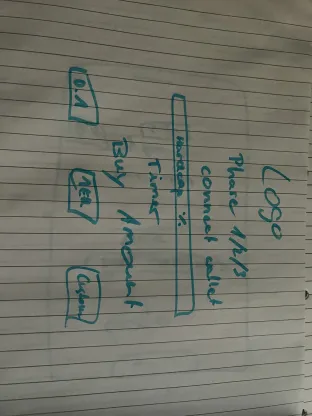 Logo
Phase 1/2/3
connect wallet
Hardcap %
Timer
Buy Amount
0.1
1ETH
Custom